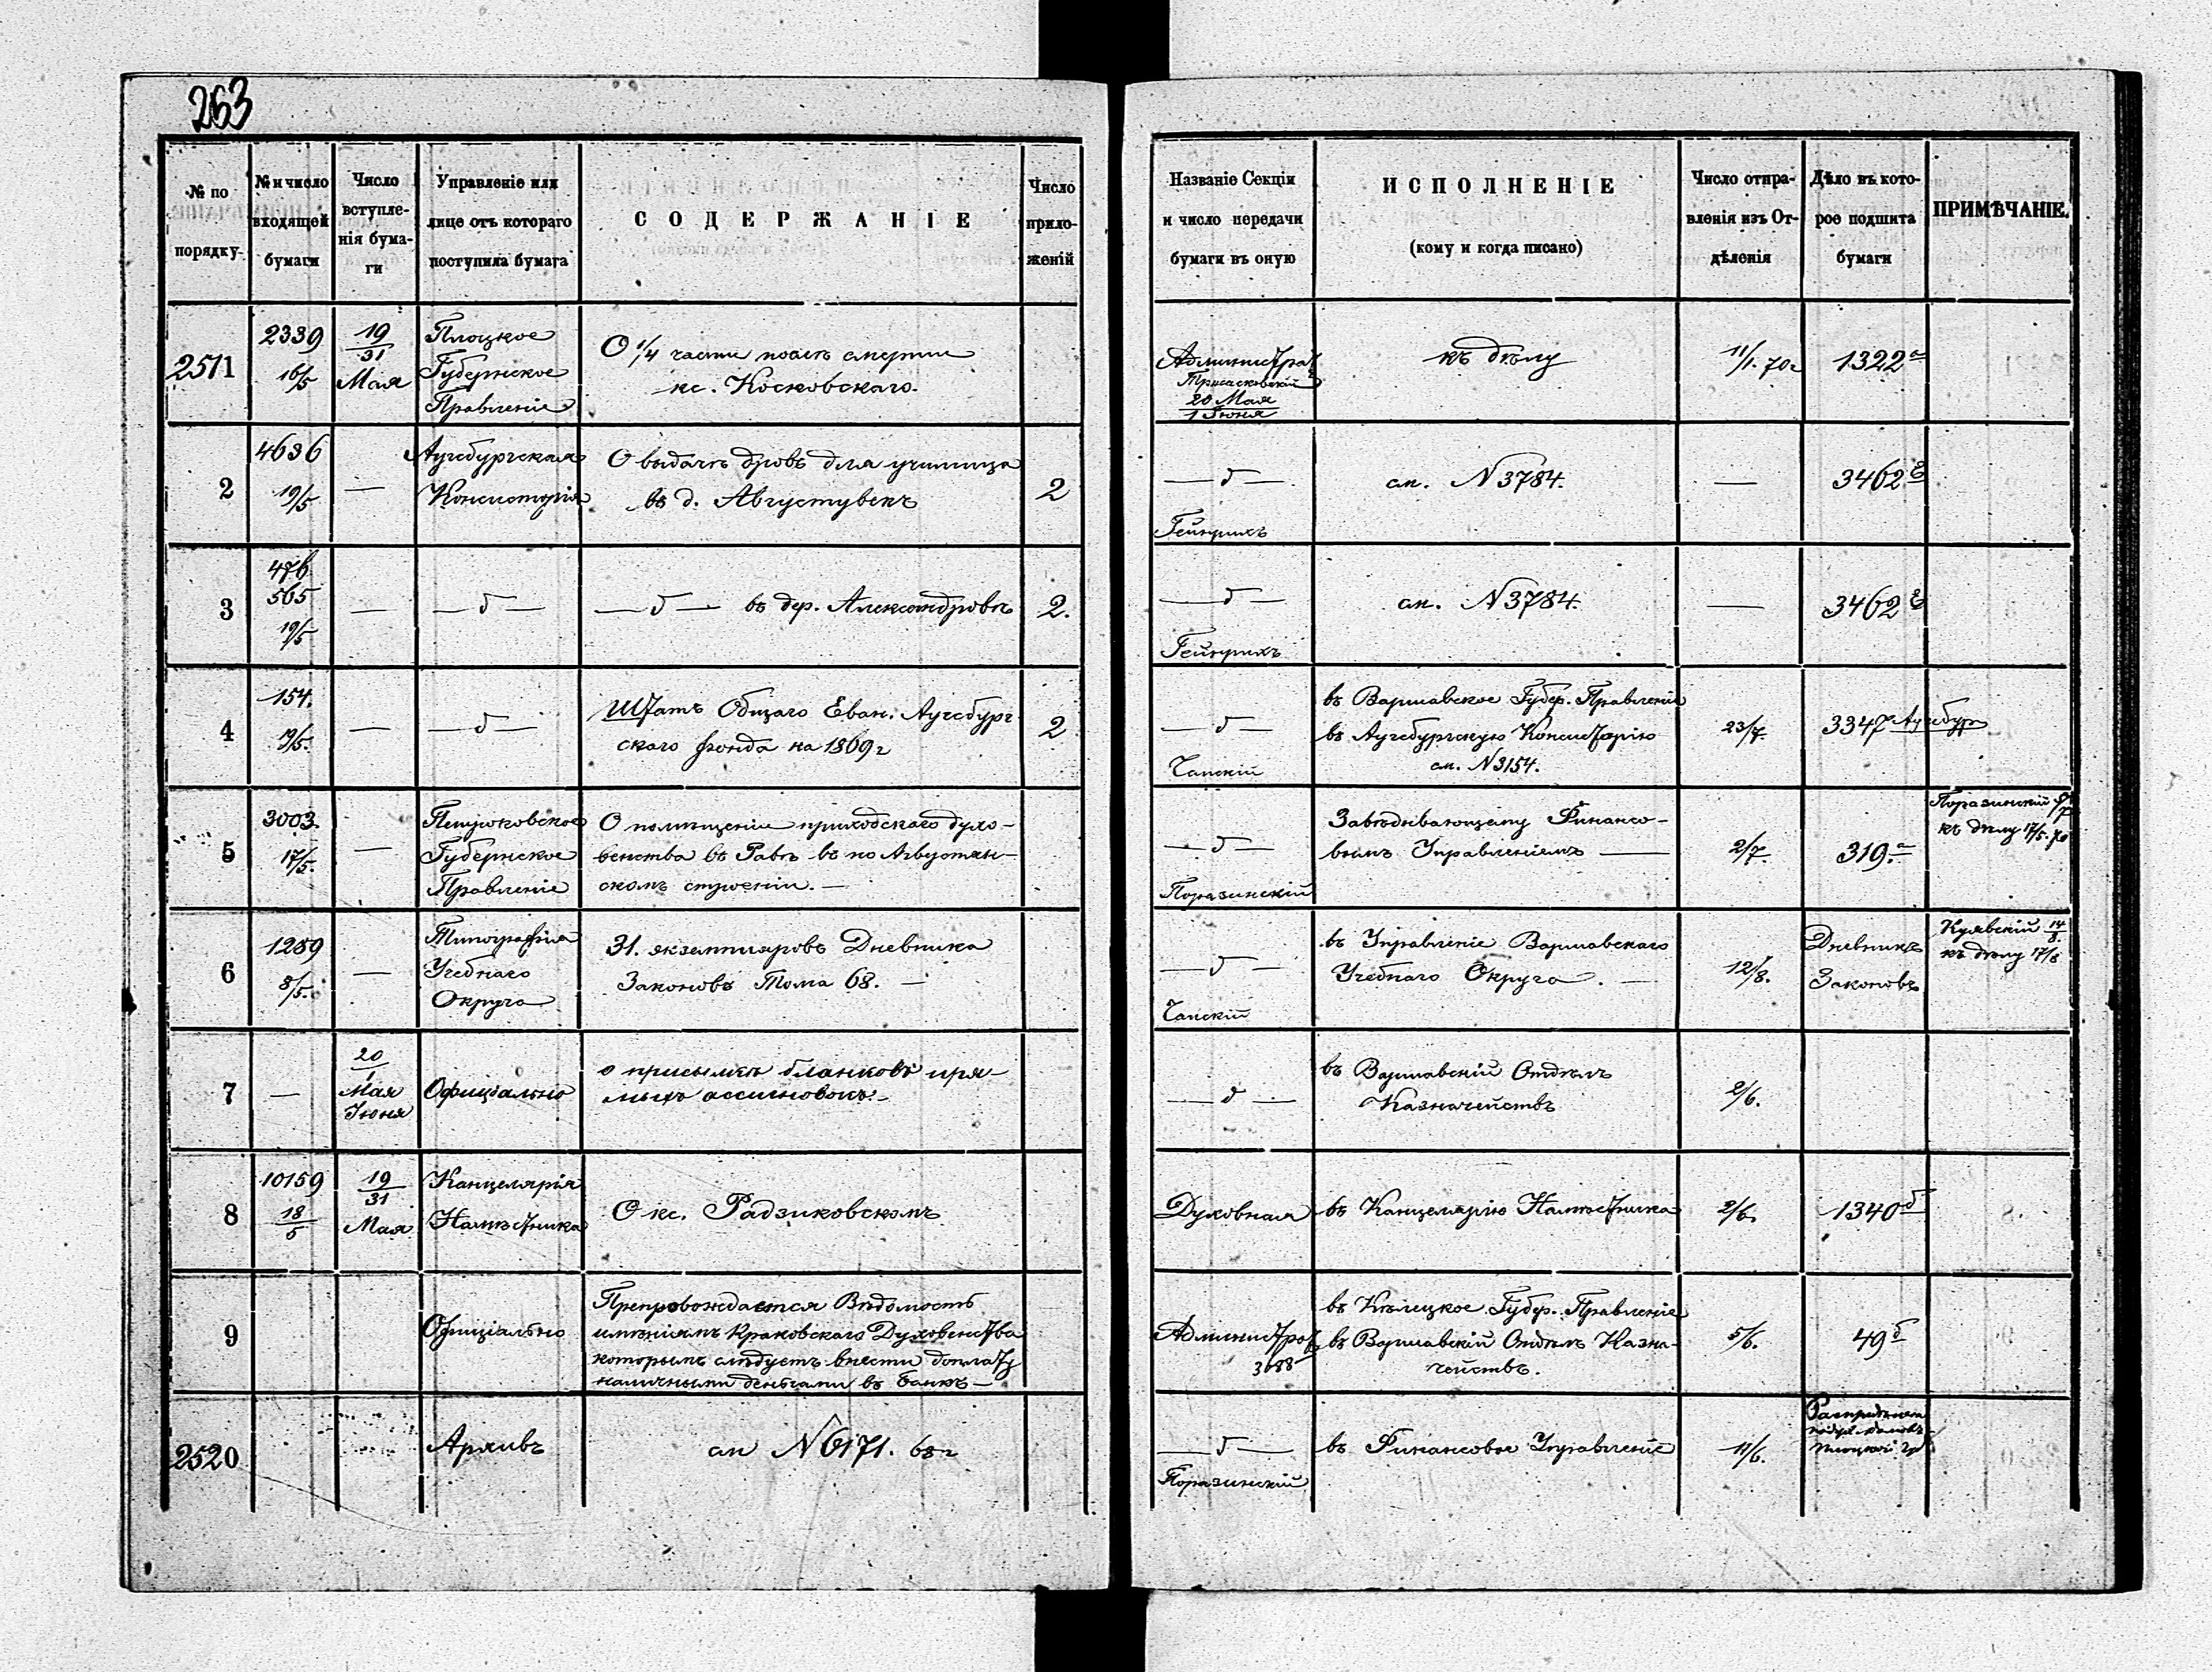 263
№ по
порядку
№ и число
входящей
бумаги
Число
вступле-
нія бума-
ги
Управленіе или
лице отъ котораго
поступила бумага
СОДЕРЖАНІЕ
Число
прило-
женій
Названіе Секціи
и число передачи
бумаги въ оную
ИСПОЛНЕНІЕ
(кому и когда писано)
Число отпра-
вленія изъ От-
дѣленія
Дѣло въ кото-
рое подшита
бумаги
ПРИМѢЧАНІЕ.
2511
2339
16/5
19/31
Мая
Плоцкое
Губернское
Правленіе
О 1/4 части послѣ смерти
кс. Косковскаго.
Администрат
20 Мая
1 Іюня
къ дѣлу
11/1. 70 г
1322 а
2
4636
19/5
—
Аугсбургская
Консисторія
О выдачѣ дровъ для училища
въ д. Августувекъ
2
— д —
Гейнрихъ
см. N 3784.
—
3462
3
476
565
19/5
—
— д —
— д — въ дер. Александровъ
2.
— д —
Гейнрихъ
см. N 3784.
—
3462
4
154.
19/5.
—
— д —
Штатъ Общаго Еван. Аугсбург
скаго фонда на 1869 г
2
— д —
Чапскій
въ Варшавское Губер. Правленіе
въ Аугсбургскую Консисторію
см. N 3154.
23/7.
3347 Аугсбур
5
3003.
17/5.
—
Петроковское
Губернское
Правленіе
О помѣщеніи приходскаго духо-
венства въ Равѣ въ по Августин-
скомъ строеніи. —
— д —
Поразинскій
Завѣдывающему Финансо-
вымъ Управленіемъ —
2/7.
319. а
Поразинскій
къ дѣлу 17/5. 70
6
1289
8/5.
—
Типографія
Учебнаго
Округа
31. экземпляровъ Дневника
Законовъ Тома 68. —
— д —
Чапскій
въ Управленіе Варшавскаго
Учебнаго Округа. —
12/8.
Дневникъ
Законовъ
Кулвскій 14/8.
къ дѣлу 17/8
7
—
20/1
Мая
Іюня
Офиціально
о присылкѣ бланковъ пря-
мыхъ ассигновокъ. —
— д —
въ Варшавскій Отдѣлъ
Казначействъ
2/6.
8
10159
18/5
19/31
Мая
Канцелярія
Намѣстника
О кс. Радзиковскомъ
Духовная
въ Канцелярію Намѣстника
2/6.
1340 б
9
Офиціально
Препровождается Вѣдомость
имѣніямъ Краковскаго Духовенства
которымъ слѣдуетъ внести доплату
наличными деньгами въ Банкъ —
Администрат
3688
въ Кѣлецкое Губер. Правленіе
въ Варшавскій Отдѣлъ Казна-
чействъ.
5/6.
49 б
2520
Архивъ
см N 6171. 68 г
— д —
Поразинскій
въ Финансовое Управленіе
11/6.